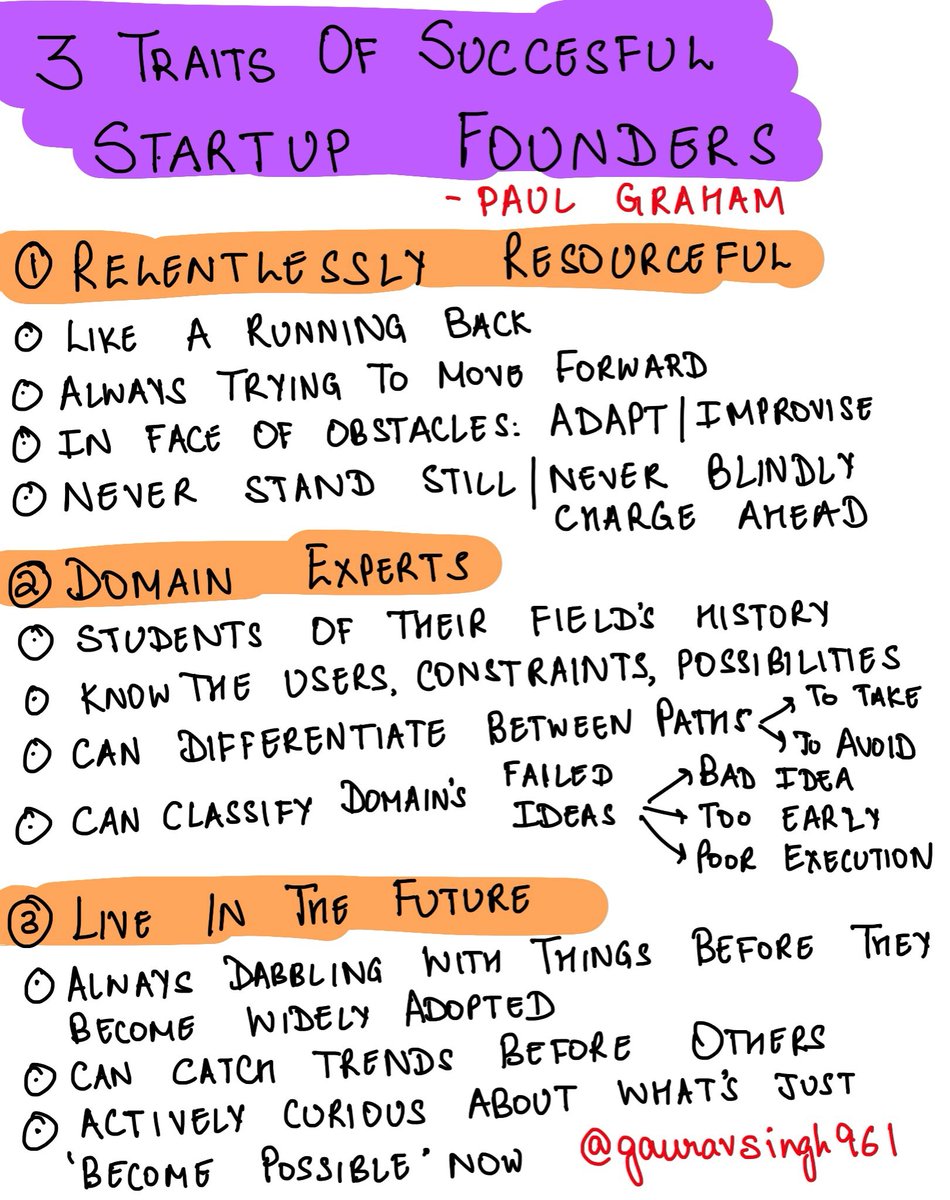 3 TRAITS OF SUCCESFUL
STARTUP FOUNDERS
- PAUL GRAHAM
① RELENTLESSLY RESOURCEFUL
LIKE A RUNNING BACK
ALWAYS TRYING TO MOVE FORWARD
IN FACE OF OBSTACLES: ADAPT | IMPROVISE
NEVER STAND STILL | NEVER BLINDLY
CHARGE AHEAD
② DOMAIN EXPERTS
STUDENTS OF THEIR FIELD'S HISTORY
KNOW THE USERS, CONSTRAINTS, POSSIBILITIES
CAN DIFFERENTIATE BETWEEN PATHS
TO TAKE
TO AVOID
CAN CLASSIFY DOMAIN'S FAILED
IDEAS
BAD IDEA
TOO EARLY
POOR EXECUTION
③ LIVE IN THE FUTURE
ALWAYS DABBLING WITH THINGS BEFORE THEY
BECOME WIDELY ADOPTED
CAN CATCH TRENDS BEFORE OTHERS
ACTIVELY CURIOUS ABOUT WHAT'S JUST
'BECOME POSSIBLE' NOW
@gauravsingh961